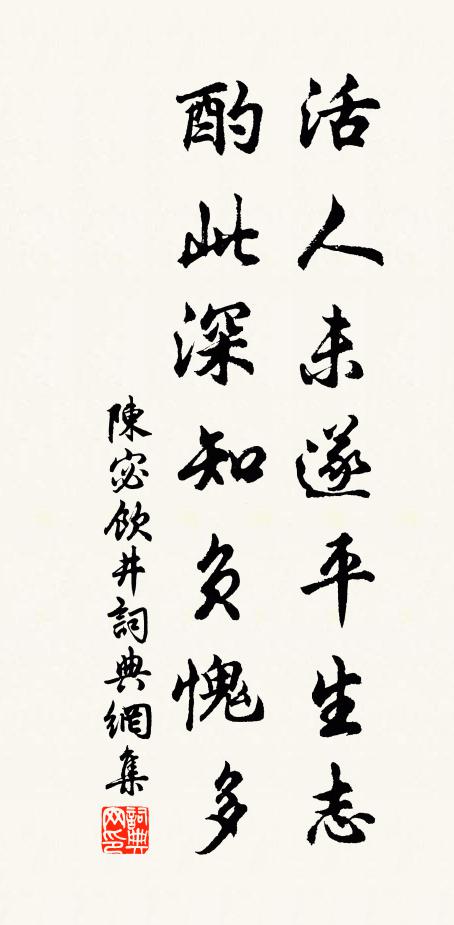 活人未遂平生志
酌此深知負愧多
陳宓飲井詞典網集
詞典網印